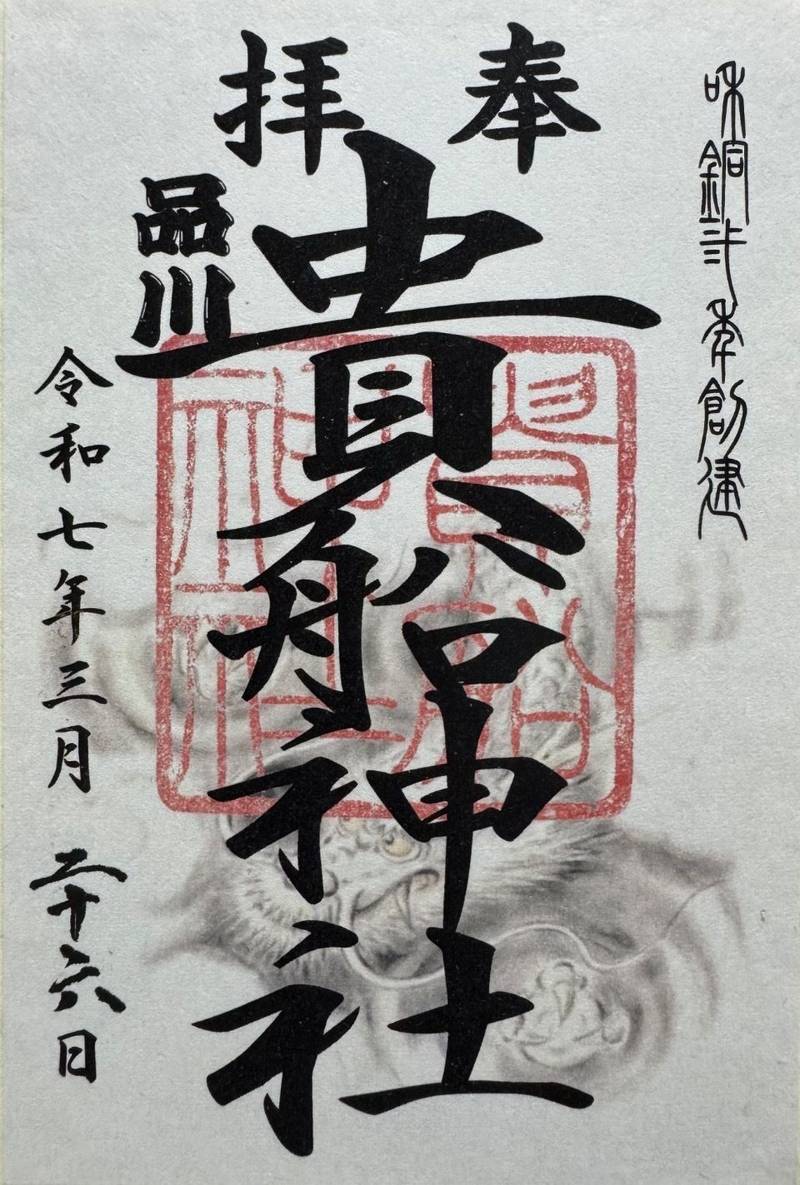 和銅弍年創建
奉拝
品川
貴船神社
貴船神社
令和七年三月二十六日